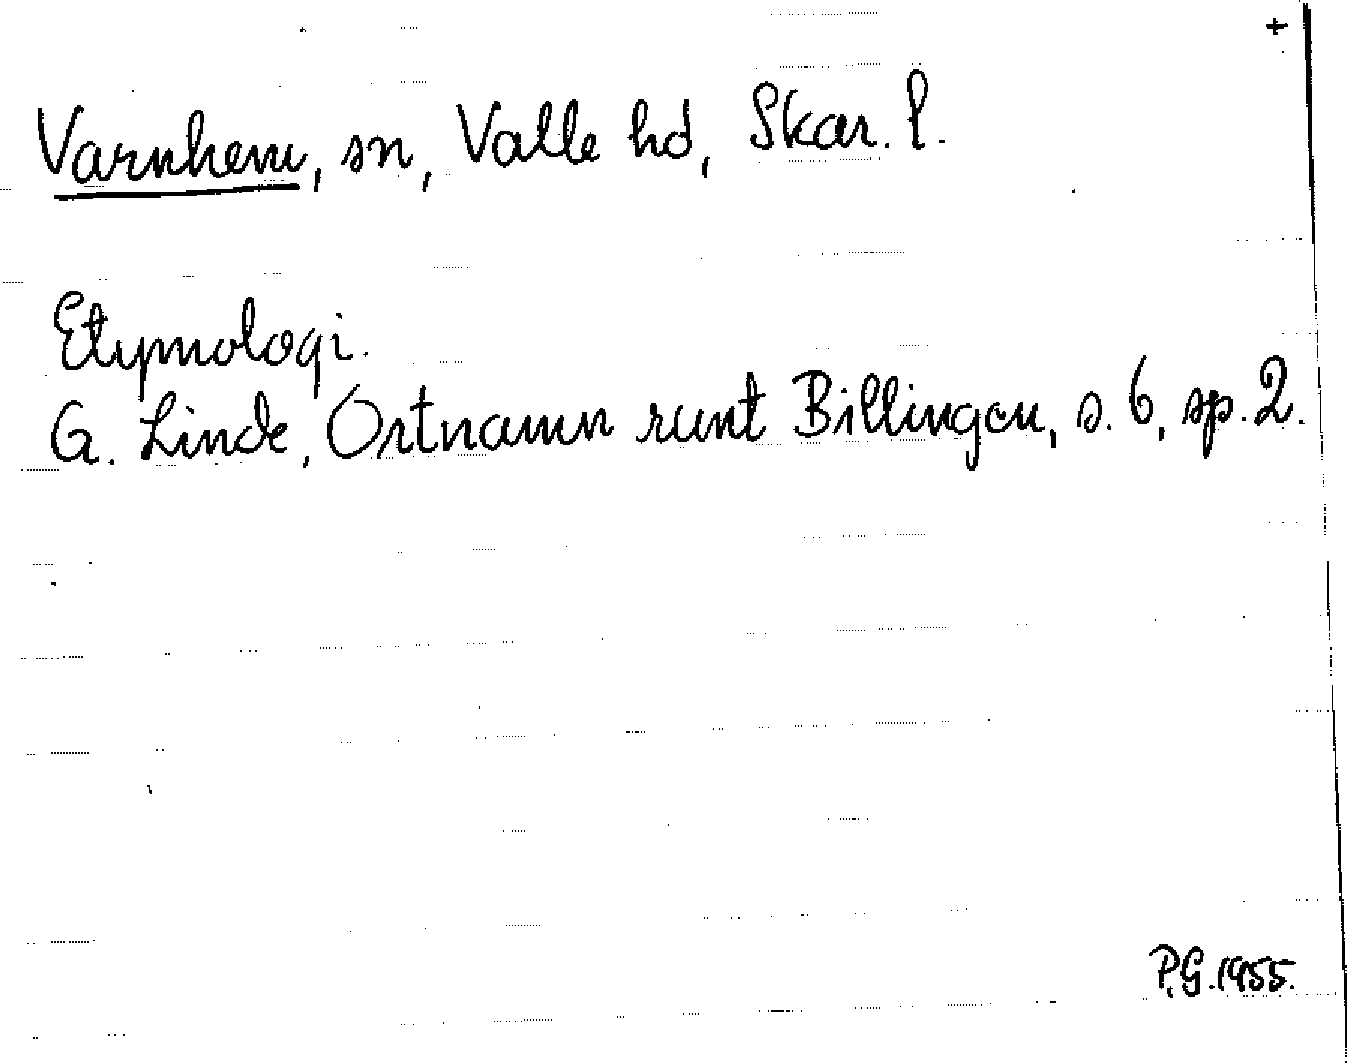 +
Varnhem, sn, Valle hd, Skar. l.
Etymologi.
G. Linde, Ortnamn runt Billingen, s. 6, sp. 2.
P.G. 1955.